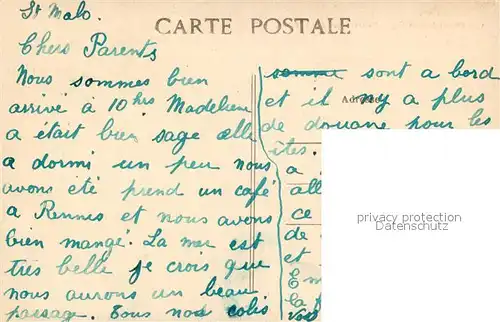 St Malo.
CARTE POSTALE
Chers Parents
Nous sommes bien
arrivé à 10 hrs Madeleine
a était bien sage elle
a dormi un peu nous
avons été prend un café
a Rennes et nous avons
bien mangé. La mer est
très belle je crois que
nous aurons un beau
passage. Tous nos colis
somme sont a bord
et il n'y a plus
Adresse
de douane pour les
îtes.
a
all
ce
de
et
Em
la
Vo
privacy protection
Datenschutz